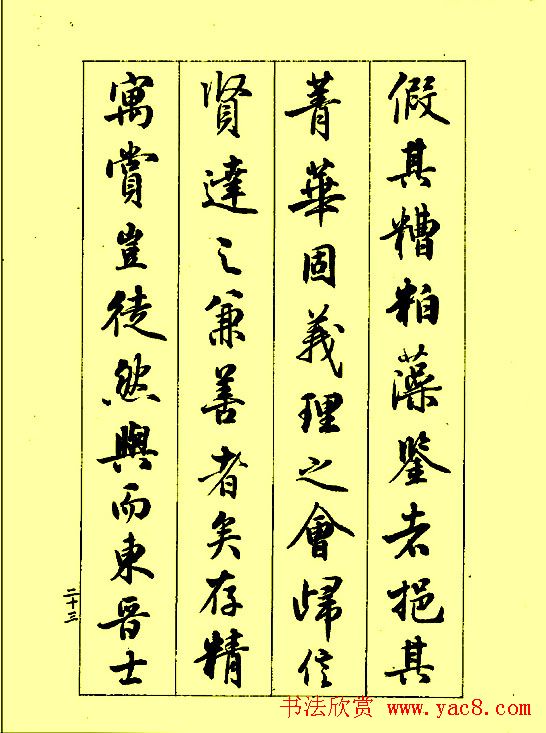 假其糟粕藻鉴者挹其
菁華固義理之會歸信
賢達之兼善者矣存精
寓賞豈徒然與而東晉士
二十三
书法欣赏 www.yac8.com